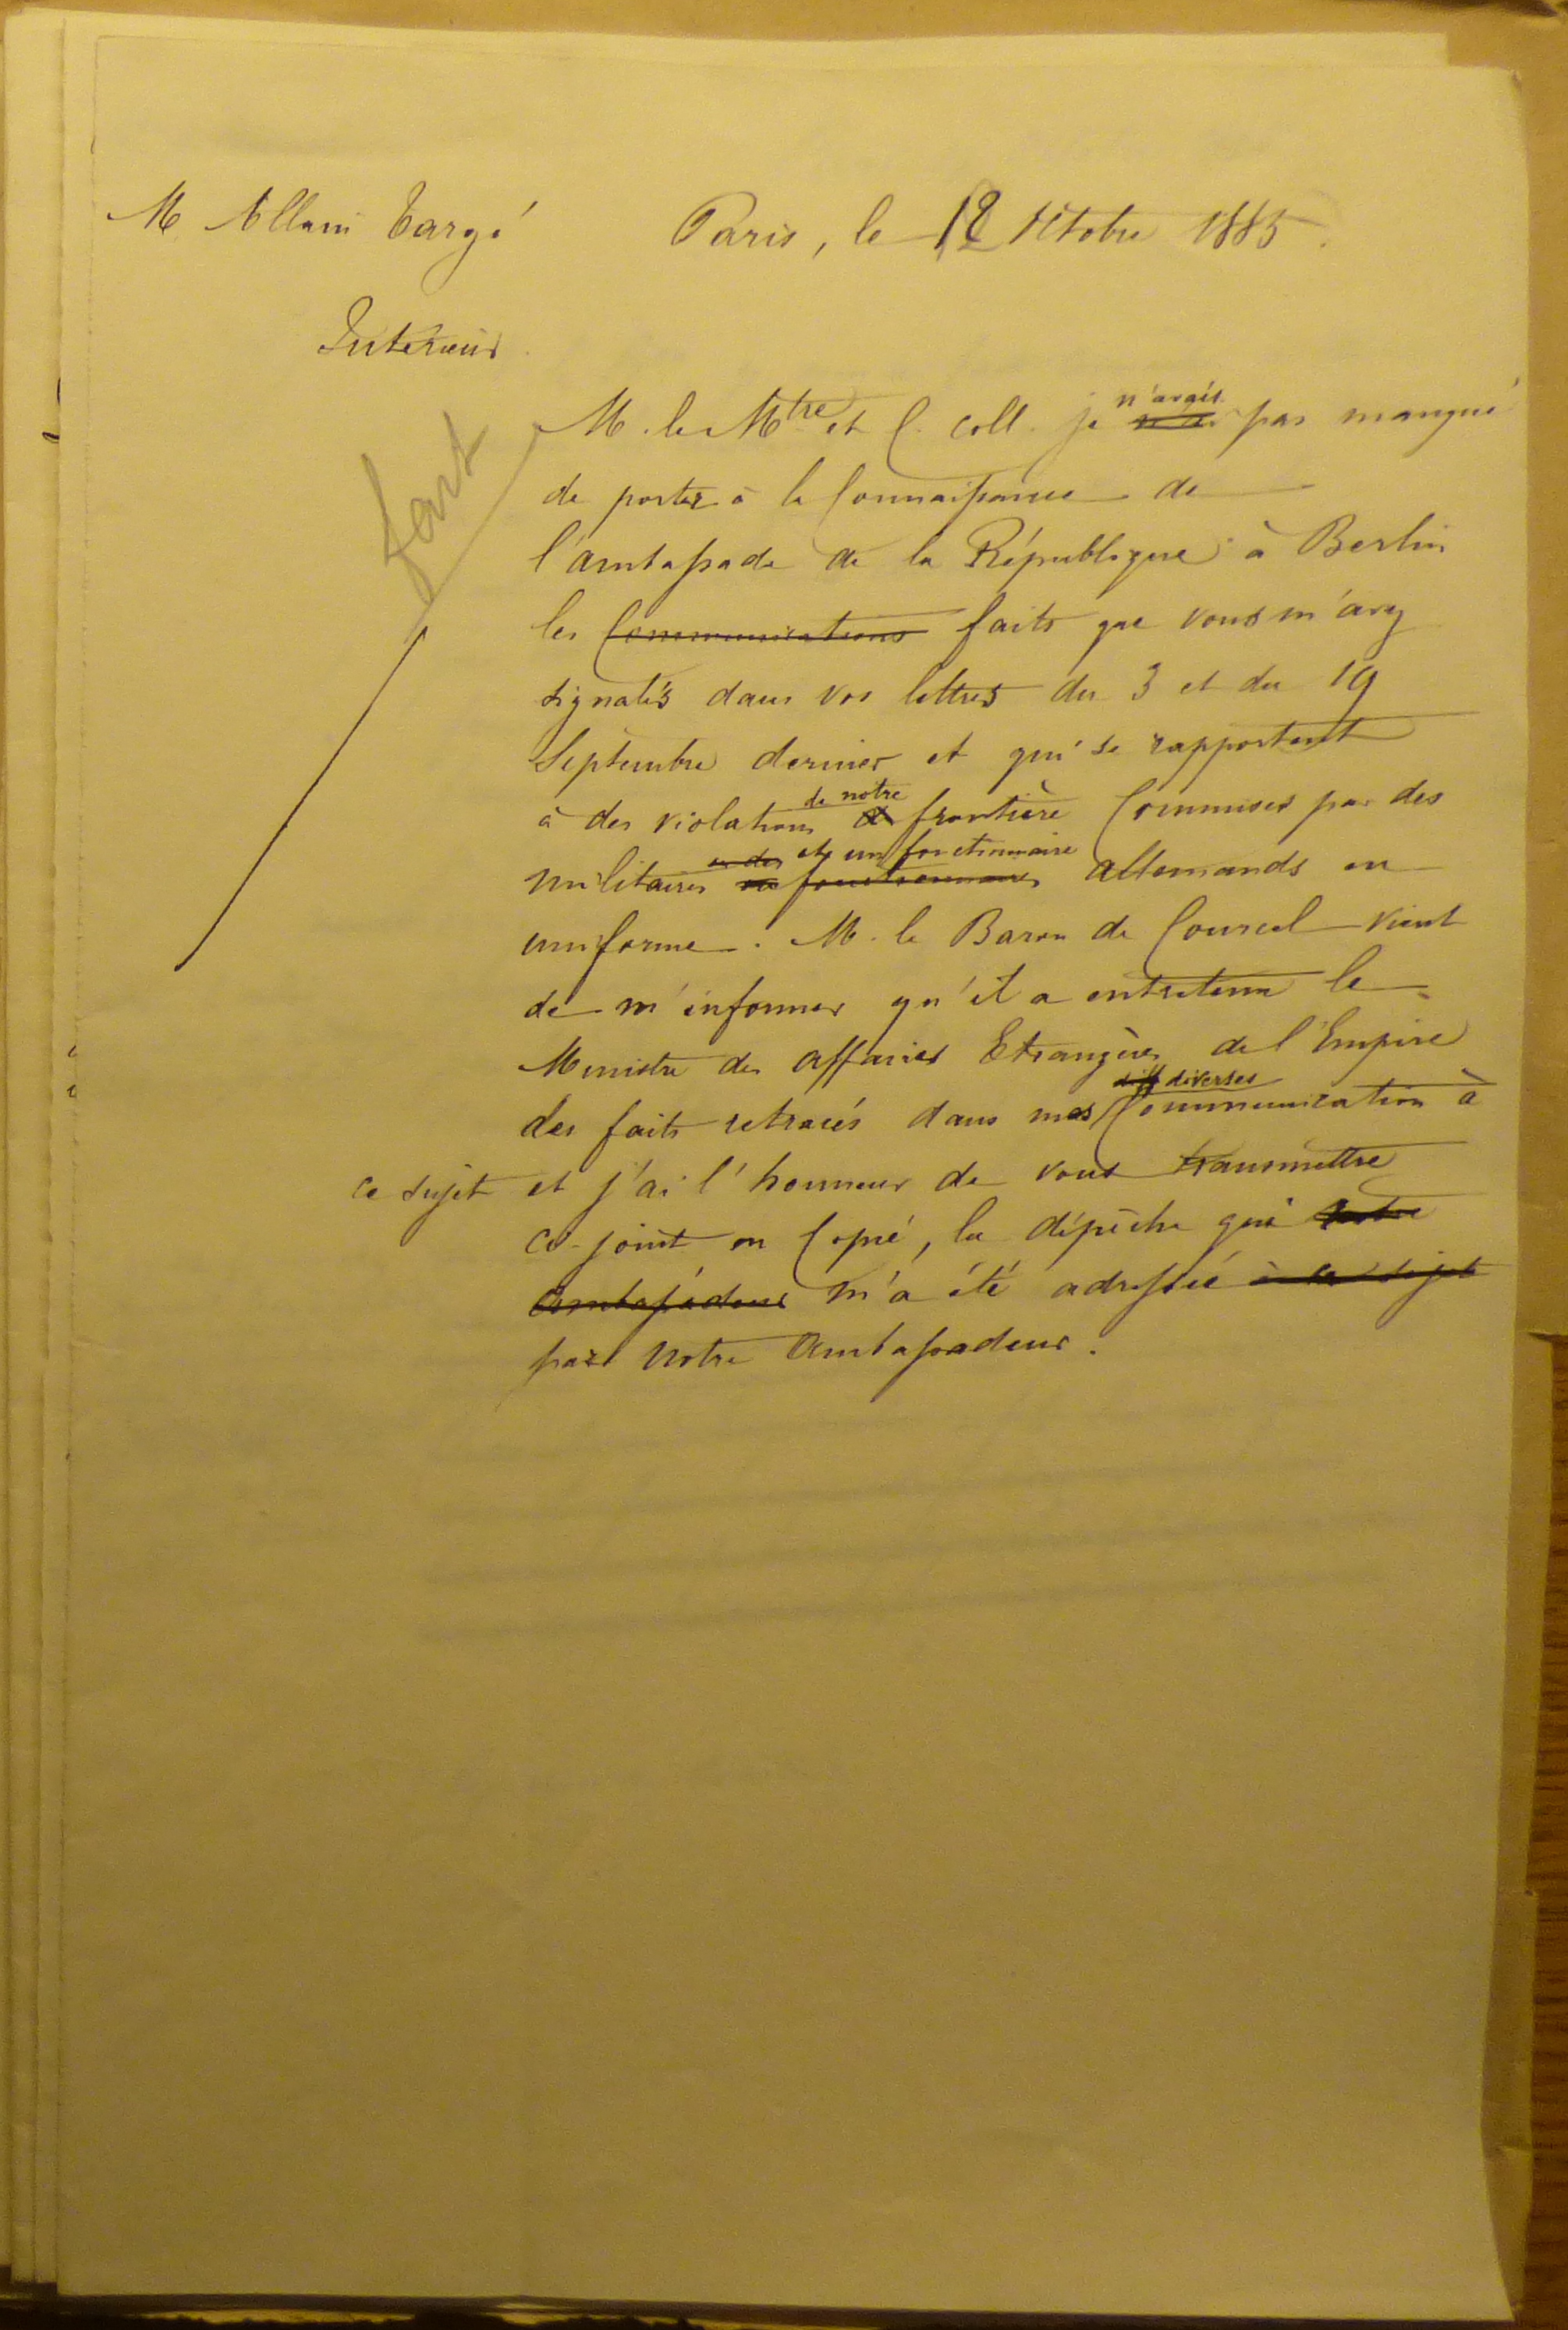 M Allain Targé
Paris, le 12 octobre 1885.
Intérieur
fait
M. le Mtre et C. coll. je n'avais pas manqué
de porter à la Connaissance de
l'ambassade de la République à Berlin
les Communications faits que vous m'avez
signalés dans vos lettres du 3 et du 19
Septembre dernier et qui se rapportent
à des violations de notre frontière Commises par des
militaires ou des et un fonctionnaire fonctionnaires allemands en
uniforme. M. le Baron de Courcel vient
de m'informer qu'il a entretenu le
Ministre des affaires Etrangères de l'Empire
des faits retracés dans mes diverses Communication à
ce sujet et j'ai l'honneur de vous transmettre
ci-joint en Copie, la dépêche qui notre
ambassadeur m'a été adressée à ce sujet
par notre ambassadeur.